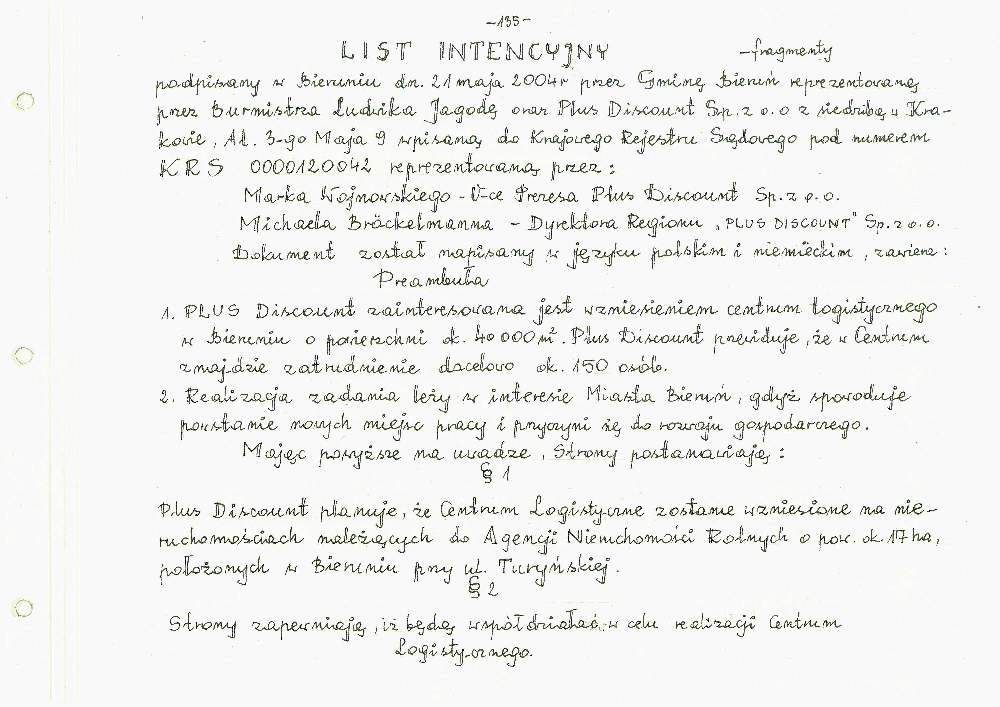 -135-
LIST INTENCYJNY -fragmenty
podpisany w Bieruniu dn. 21 maja 2004r przez Gminę Bieruń reprezentowaną
przez Burmistrza Ludwika Jagodę oraz Plus Discount Sp. z o.o z siedzibą w Kra-
kowie, Al. 3-go Maja 9 wpisaną do Krajowego Rejestru Sądowego pod numerem
KRS 0000120042 reprezentowaną przez:
Marka Wojnowskiego - V-ce Prezesa Plus Discount Sp. z o.o.
Michaela Bröckelmanna - Dyrektora Regionu „PLUS DISCOUNT" Sp. z o.o.
Dokument został napisany w języku polskim i niemieckim, zawiera:
Preambuła
1. PLUS Discount zainteresowana jest wzniesieniem centrum logistycznego
w Bieruniu o powierzchni ok. 40 000 m². Plus Discount przewiduje, że w Centrum
znajdzie zatrudnienie docelowo ok. 150 osób.
2. Realizacja zadania leży w interesie Miasta Bieruń, gdyż spowoduje
powstanie nowych miejsc pracy i przyczyni się do rozwoju gospodarczego.
Mając powyższe na uwadze, Strony postanawiają:
§ 1
Plus Discount planuje, że Centrum Logistyczne zostanie wzniesione na nie-
ruchomościach należących do Agencji Nieruchomości Rolnych o pow. ok. 17 ha,
położonych w Bieruniu przy ul. Turyńskiej.
§ 2
Strony zapewniają, iż będą współdziałać w celu realizacji Centrum
Logistycznego.